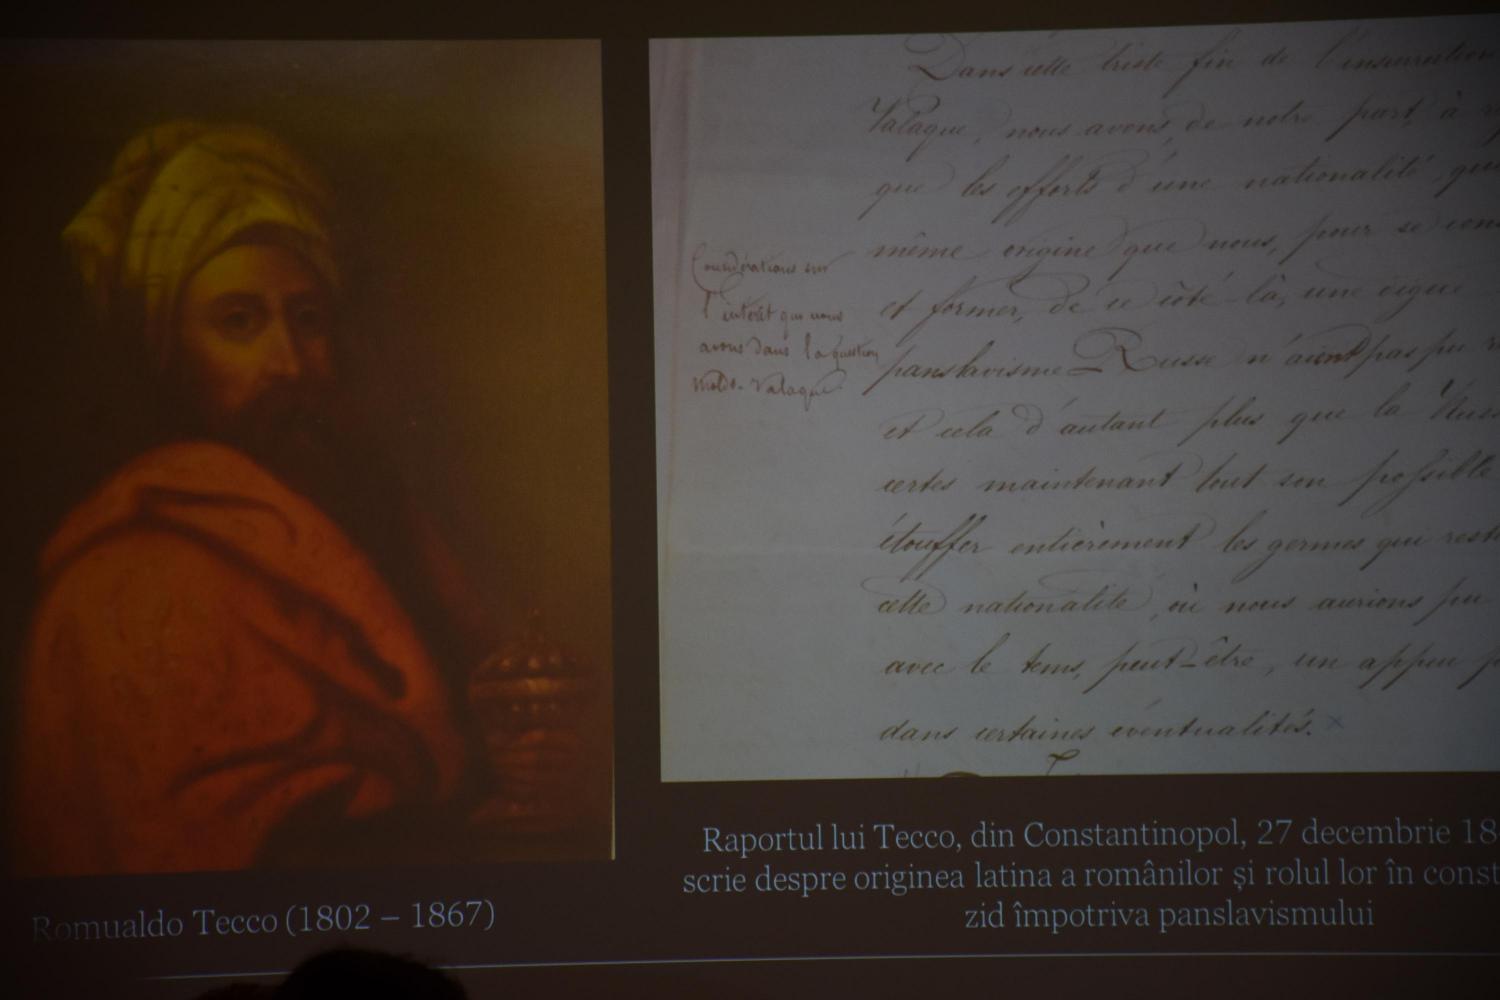 Dans cette triste fin de l'insurrection
Valaque, nous avons de notre part, à
que les efforts d'une nationalité, qui
même origine que nous, pour se
et former, de ce côté-là, une digue
panslavisme Russe n'aient pas pu
et cela d'autant plus que la
certes maintenant tout son possible
étouffer entièrement les germes qui
cette nationalité, où nous aurions pu
avec le tems, peut-être, un appui
dans certaines éventualités.
Considérations sur
l'intérêt que nous
avons dans la question
moldo-Valaque.
Romualdo Tecco (1802 – 1867)
Raportul lui Tecco, din Constantinopol, 27 decembrie 18
scrie despre originea latina a românilor și rolul lor în const
zid împotriva panslavismului